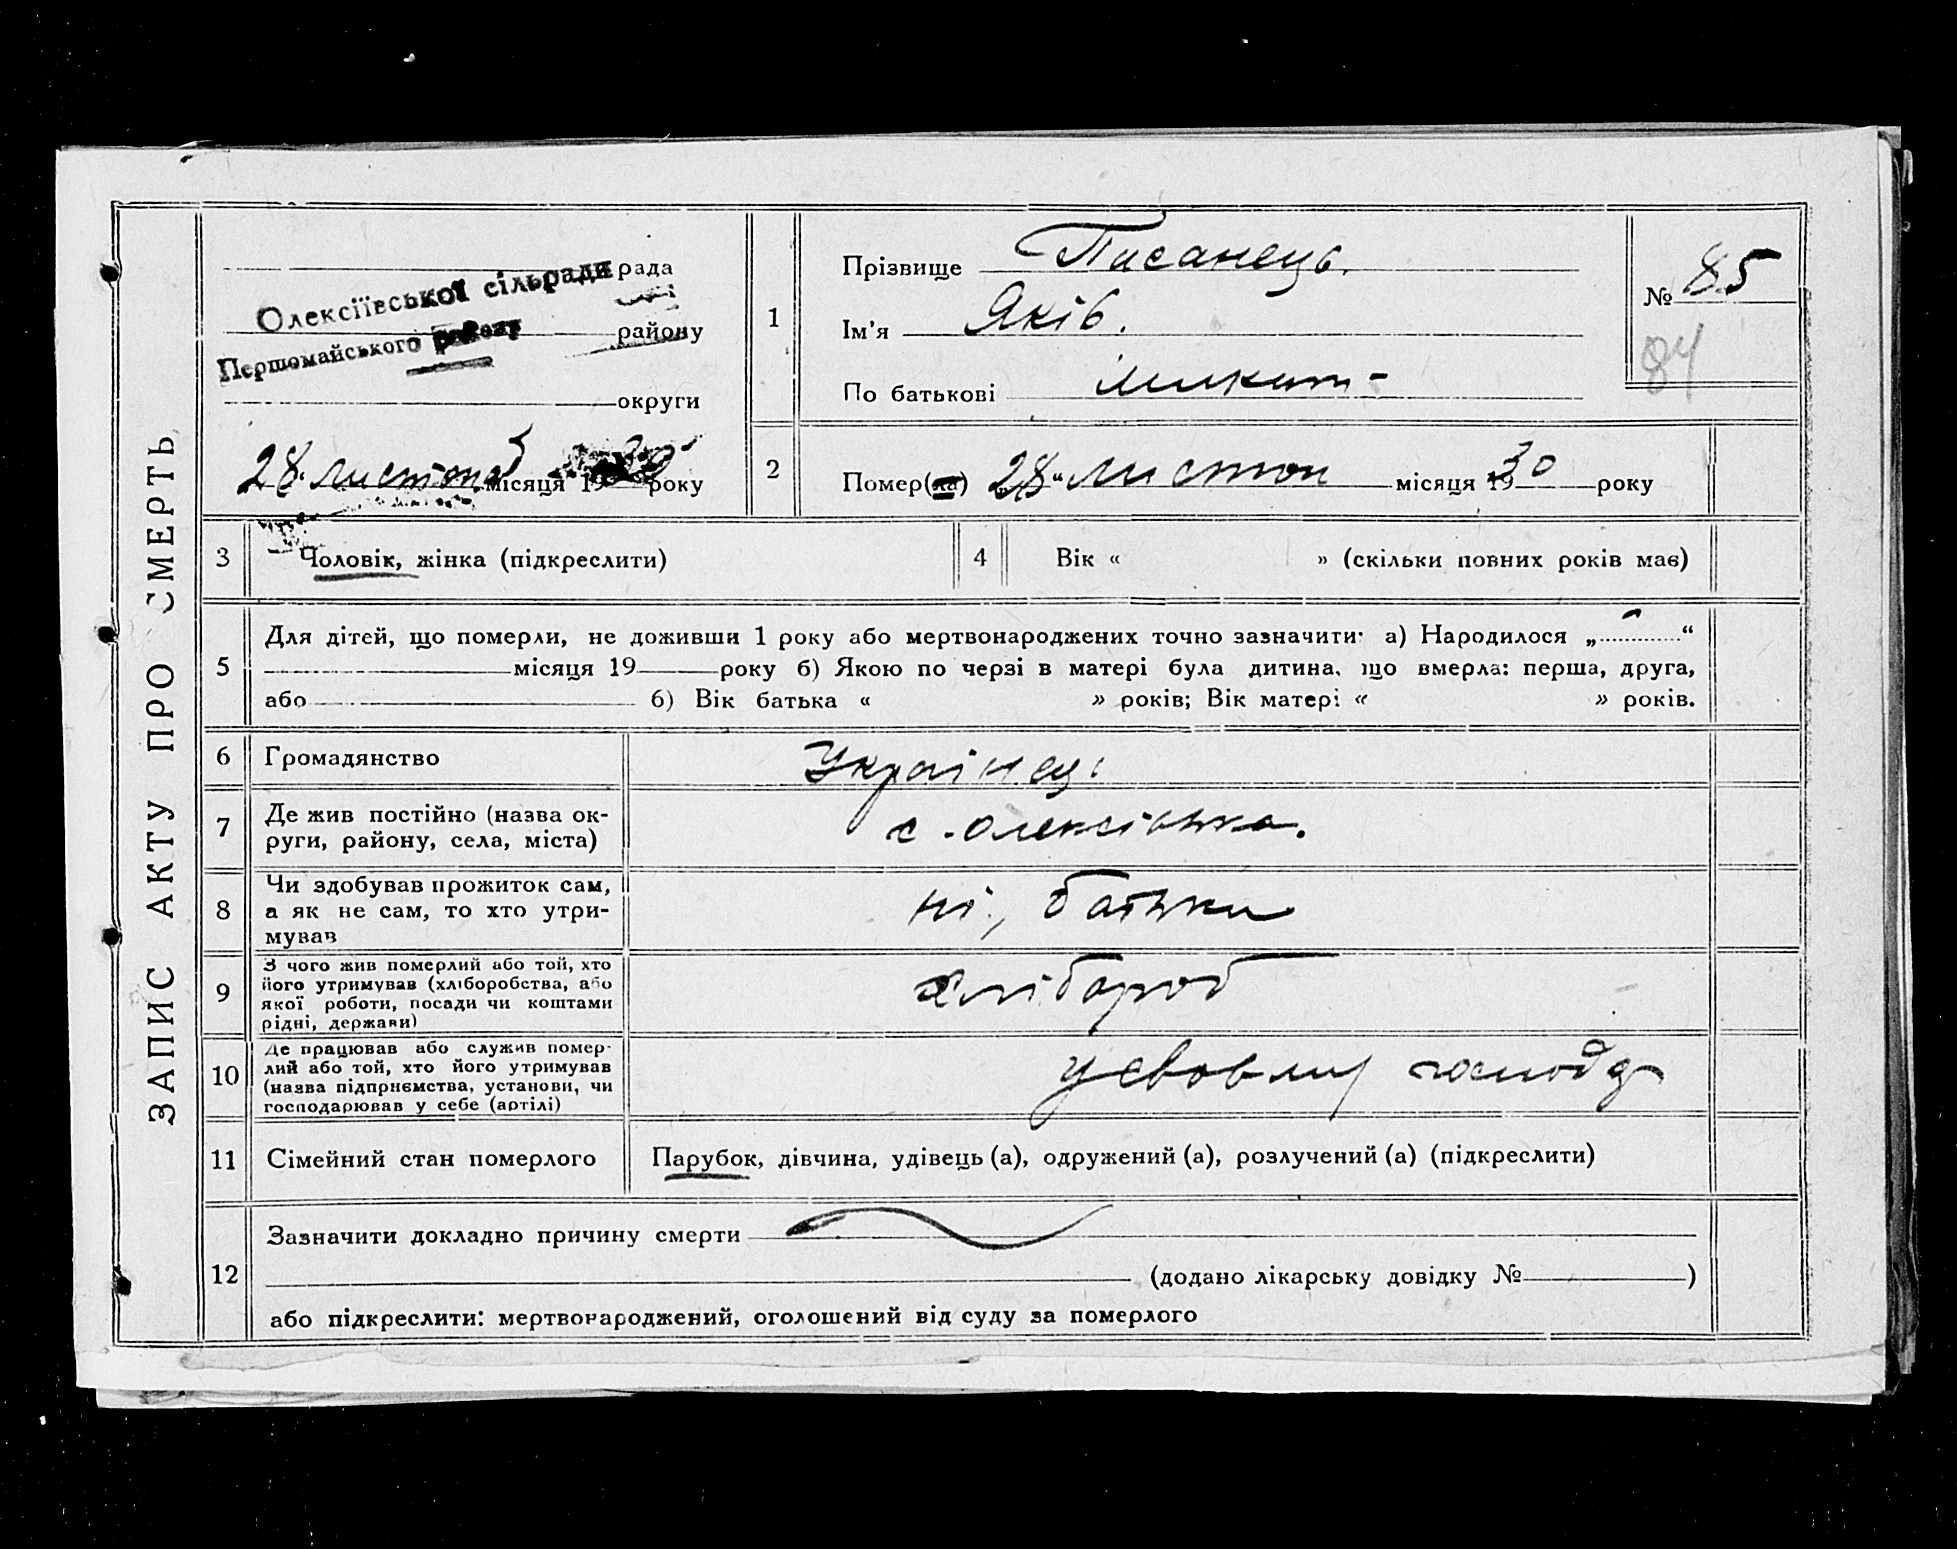 ЗАПИС АКТУ ПРО СМЕРТЬ
рада
Олексіївської сільради
району
Першомайського району
округи
28 листопа місяця 19 30 року
1
Прізвище Писанець.
Ім'я Яків.
По батькові Микит-
№ 85
84
2
Помер(ла) „28“ листоп місяця 1930 року
3
Чоловік, жінка (підкреслити)
4
Вік « » (скільки повних років має)
5
Для дітей, що померли, не доживши 1 року або мертвонароджених точно зазначити: а) Народилося „ “
місяця 19 року б) Якою по черзі в матері була дитина, що вмерла: перша, друга,
або б) Вік батька « » років; Вік матері « » років.
6
Громадянство
Українець
7
Де жив постійно (назва ок-
руги, району, села, міста)
с. Олексіївка.
8
Чи здобував прожиток сам,
а як не сам, то хто утри-
мував
ні, батьки
9
З чого жив померлий або той, хто
його утримував (хліборобства, або
якої роботи, посади чи коштами
рідні, держави)
хлібороб
10
Де працював або служив помер-
лий або той, хто його утримував
(назва підприємства, установи, чи
господарював у себе (артілі)
у своєму господ
11
Сімейний стан померлого
Парубок, дівчина, удівець (а), одружений (а), розлучений (а) (підкреслити)
12
Зазначити докладно причину смерти
(додано лікарську довідку № )
або підкреслити: мертвонароджений, оголошений від суду за померлого